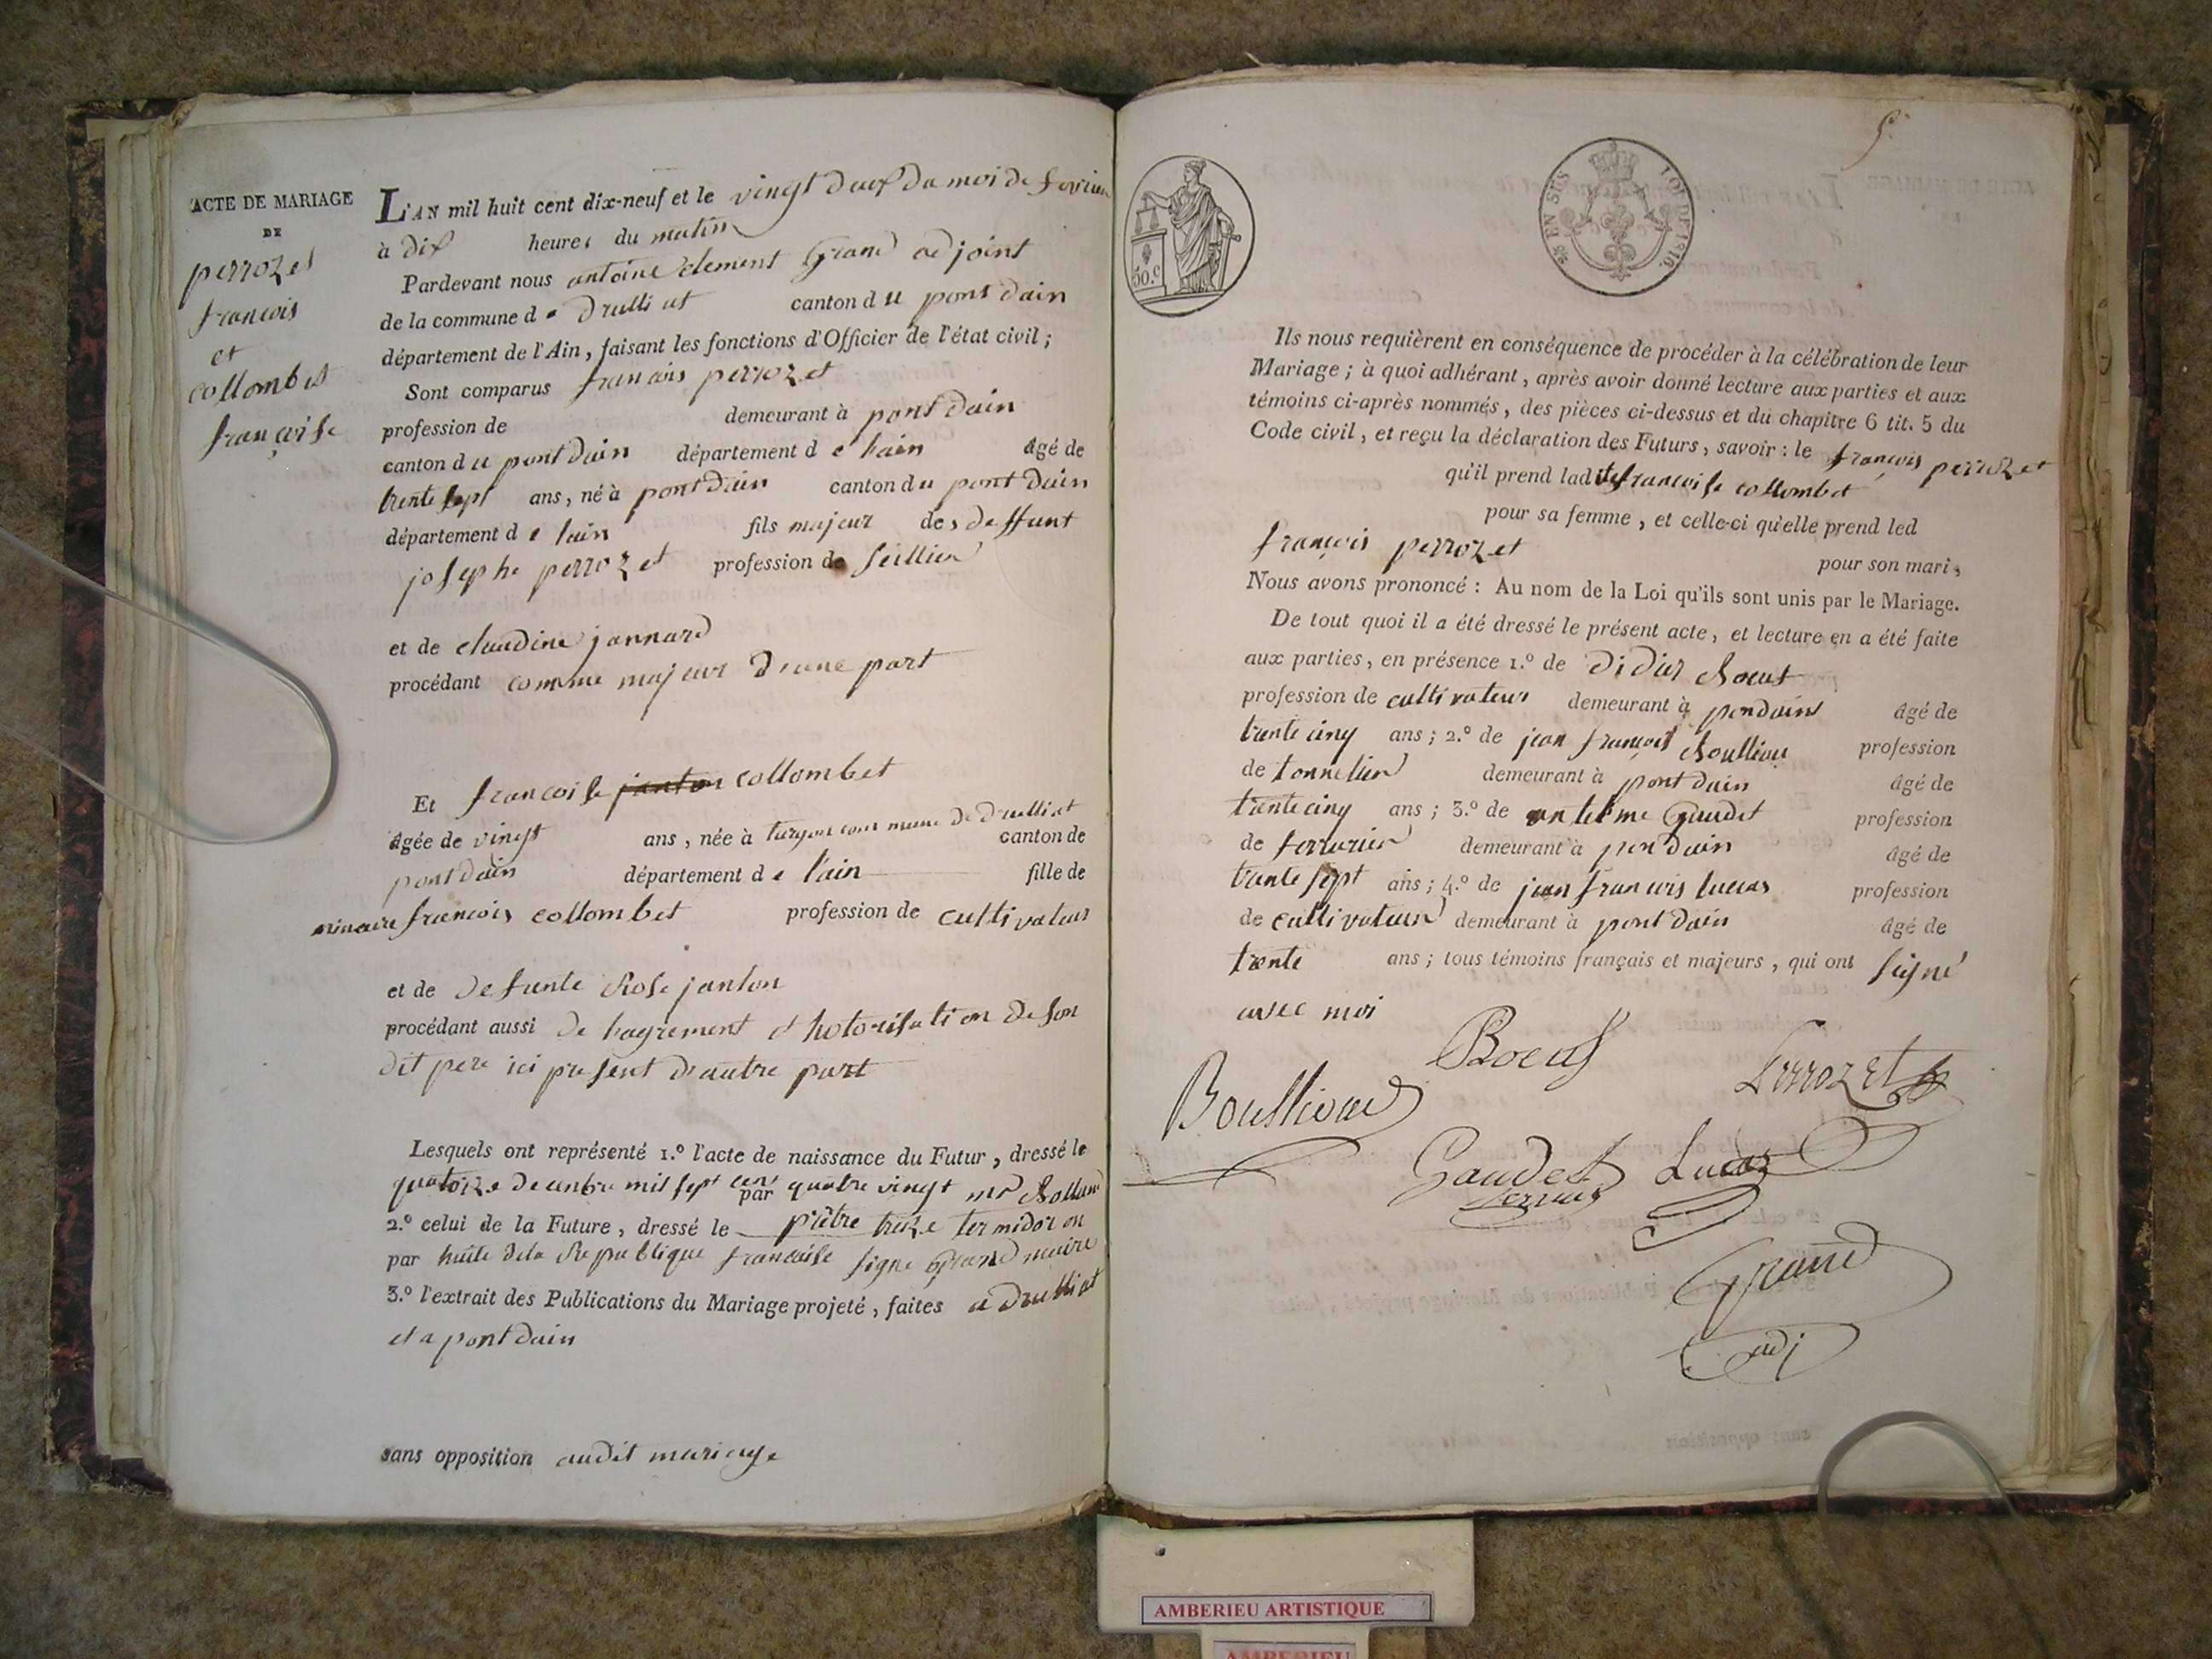 ACTE DE MARIAGE
DE
perrozet
francois
et
collombet
françoise
L'AN mil huit cent dix-neuf et le vingt deux du moi de fevrier
à dix heures du matin
Pardevant nous antoine clement Grand adjoint
de la commune de drulliat canton du pont dain
département de l'Ain, faisant les fonctions d'Officier de l'état civil;
Sont comparus francois perrozet
profession de demeurant à pont dain
canton du pont dain département de lain âgé de
trente sept ans, né à pont dain canton du pont dain
département de lain fils majeur des deffunt
josephe perrozet profession de seillier
et de claudine jannard
procédant comme majeur d'une part
Et francoise janton collombet
âgée de vingt ans, née à turgon commune de drulliat canton de
pont dain département de l'ain fille de
mineure francois collombet profession de cultivateur
et de defunte Rose janton
procédant aussi de lagrement et hotorisation de son
dit pere ici present d'autre part
Lesquels ont représenté 1.º l'acte de naissance du Futur, dressé le
quatorze decenbre mil sept cent par quatre vingt mr Rolland
2.º celui de la Future, dressé le prêtre treize termidor an
par huite de la Republique francaise signe grand maire
3.º l'extrait des Publications du Mariage projeté, faites a drulliat
et a pont dain
sans opposition audit mariage
5
50.c
LOI DE 1816.
Ils nous requièrent en conséquence de procéder à la célébration de leur
Mariage; à quoi adhérant, après avoir donné lecture aux parties et aux
témoins ci-après nommés, des pièces ci-dessus et du chapitre 6 tit. 5 du
Code civil, et reçu la déclaration des Futurs, savoir: le françois perrozet
qu'il prend ladite francoise collombet
pour sa femme, et celle-ci qu'elle prend led
françois perrozet
pour son mari,
Nous avons prononcé: Au nom de la Loi qu'ils sont unis par le Mariage.
De tout quoi il a été dressé le présent acte, et lecture en a été faite
aux parties, en présence 1.º de didier Boeuf
profession de cultivateur demeurant à pondains âgé de
trente cinq ans; 2.º de jean françois Boullieu profession
de tonnelier demeurant à pont dain âgé de
trente cinq ans; 3.º de antelme Gaudet profession
de serrurier demeurant à pon dain âgé de
trente sept ans; 4.º de jean francois lucas profession
de cultivateur demeurant à pont dain âgé de
trente ans; tous témoins français et majeurs, qui ont signé
avec moi
Boeuf
Perrozet
Gaudet
Lucas
Grand
adj
AMBERIEU ARTISTIQUE
AMBERIEU